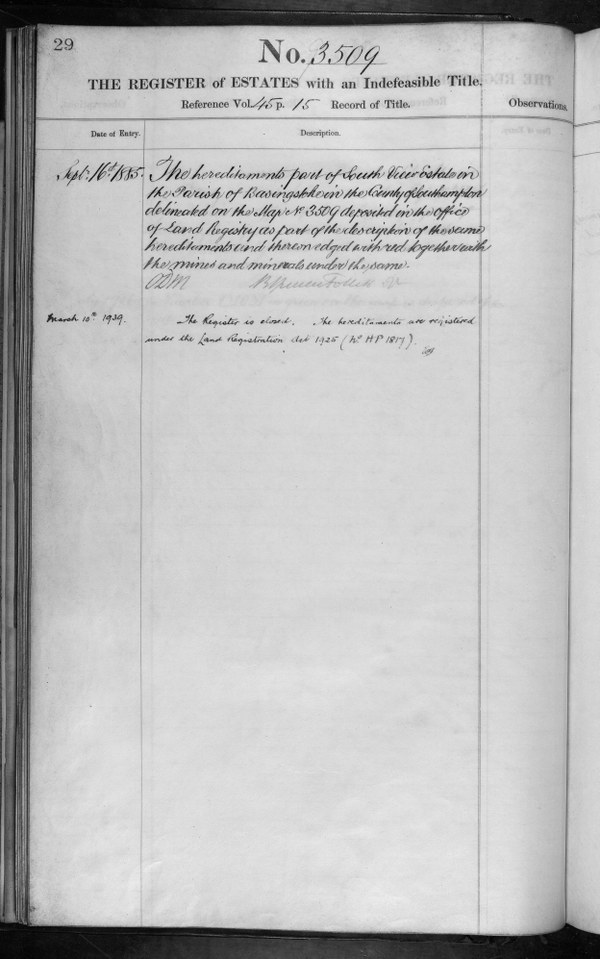 29
No. 3509
THE REGISTER of ESTATES with an Indefeasible Title.
Reference Vol. 45 p. 15 Record of Title.
Observations.
Date of Entry.
Description.
Sept. 16th 1885. The hereditaments part of South View Estate in
the Parish of Basingstoke in the County of Southampton
delineated on the Map No 3509 deposited in the office
of Land Registry as part of the description of the same
hereditaments and thereon edged with red together with
the mines and minerals under the same.
March 10th 1939. The Register is closed. The hereditaments are registered
under the Land Registration Act 1925 (No HP 1817).